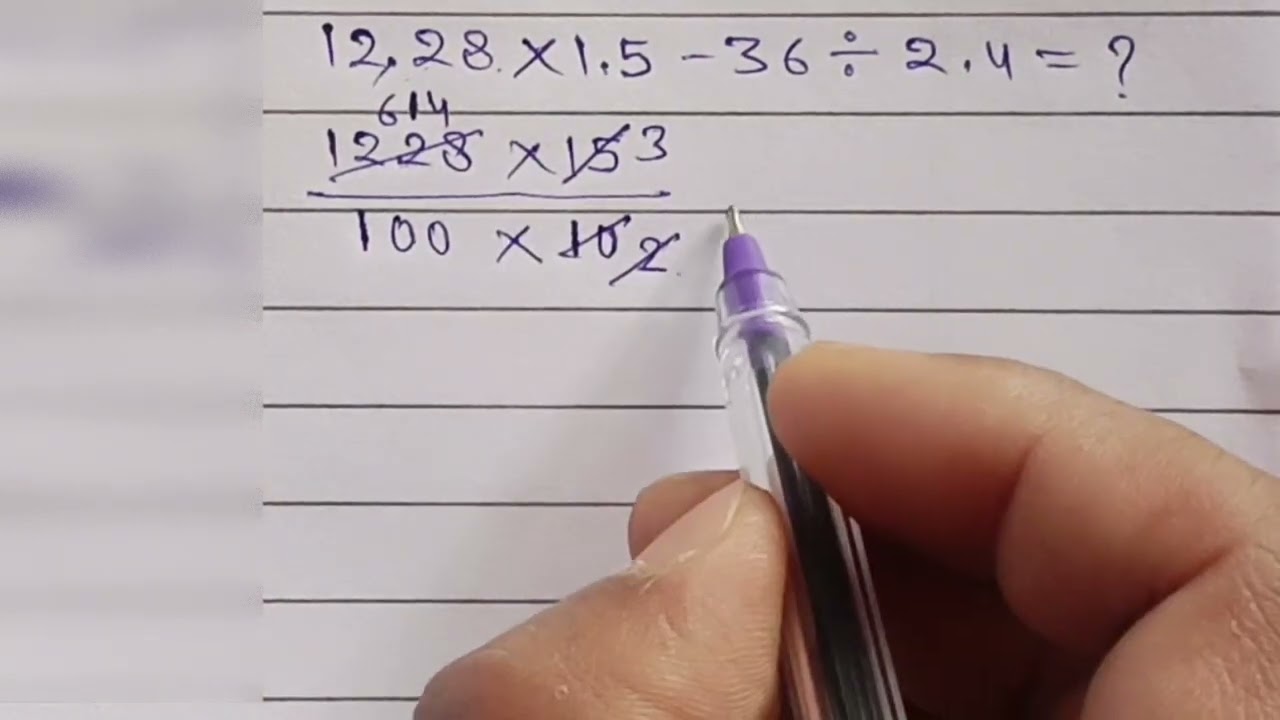 12.28 × 1.5 - 36 ÷ 2.4 = ?
614
1228 × 15 3
100 × 10 2